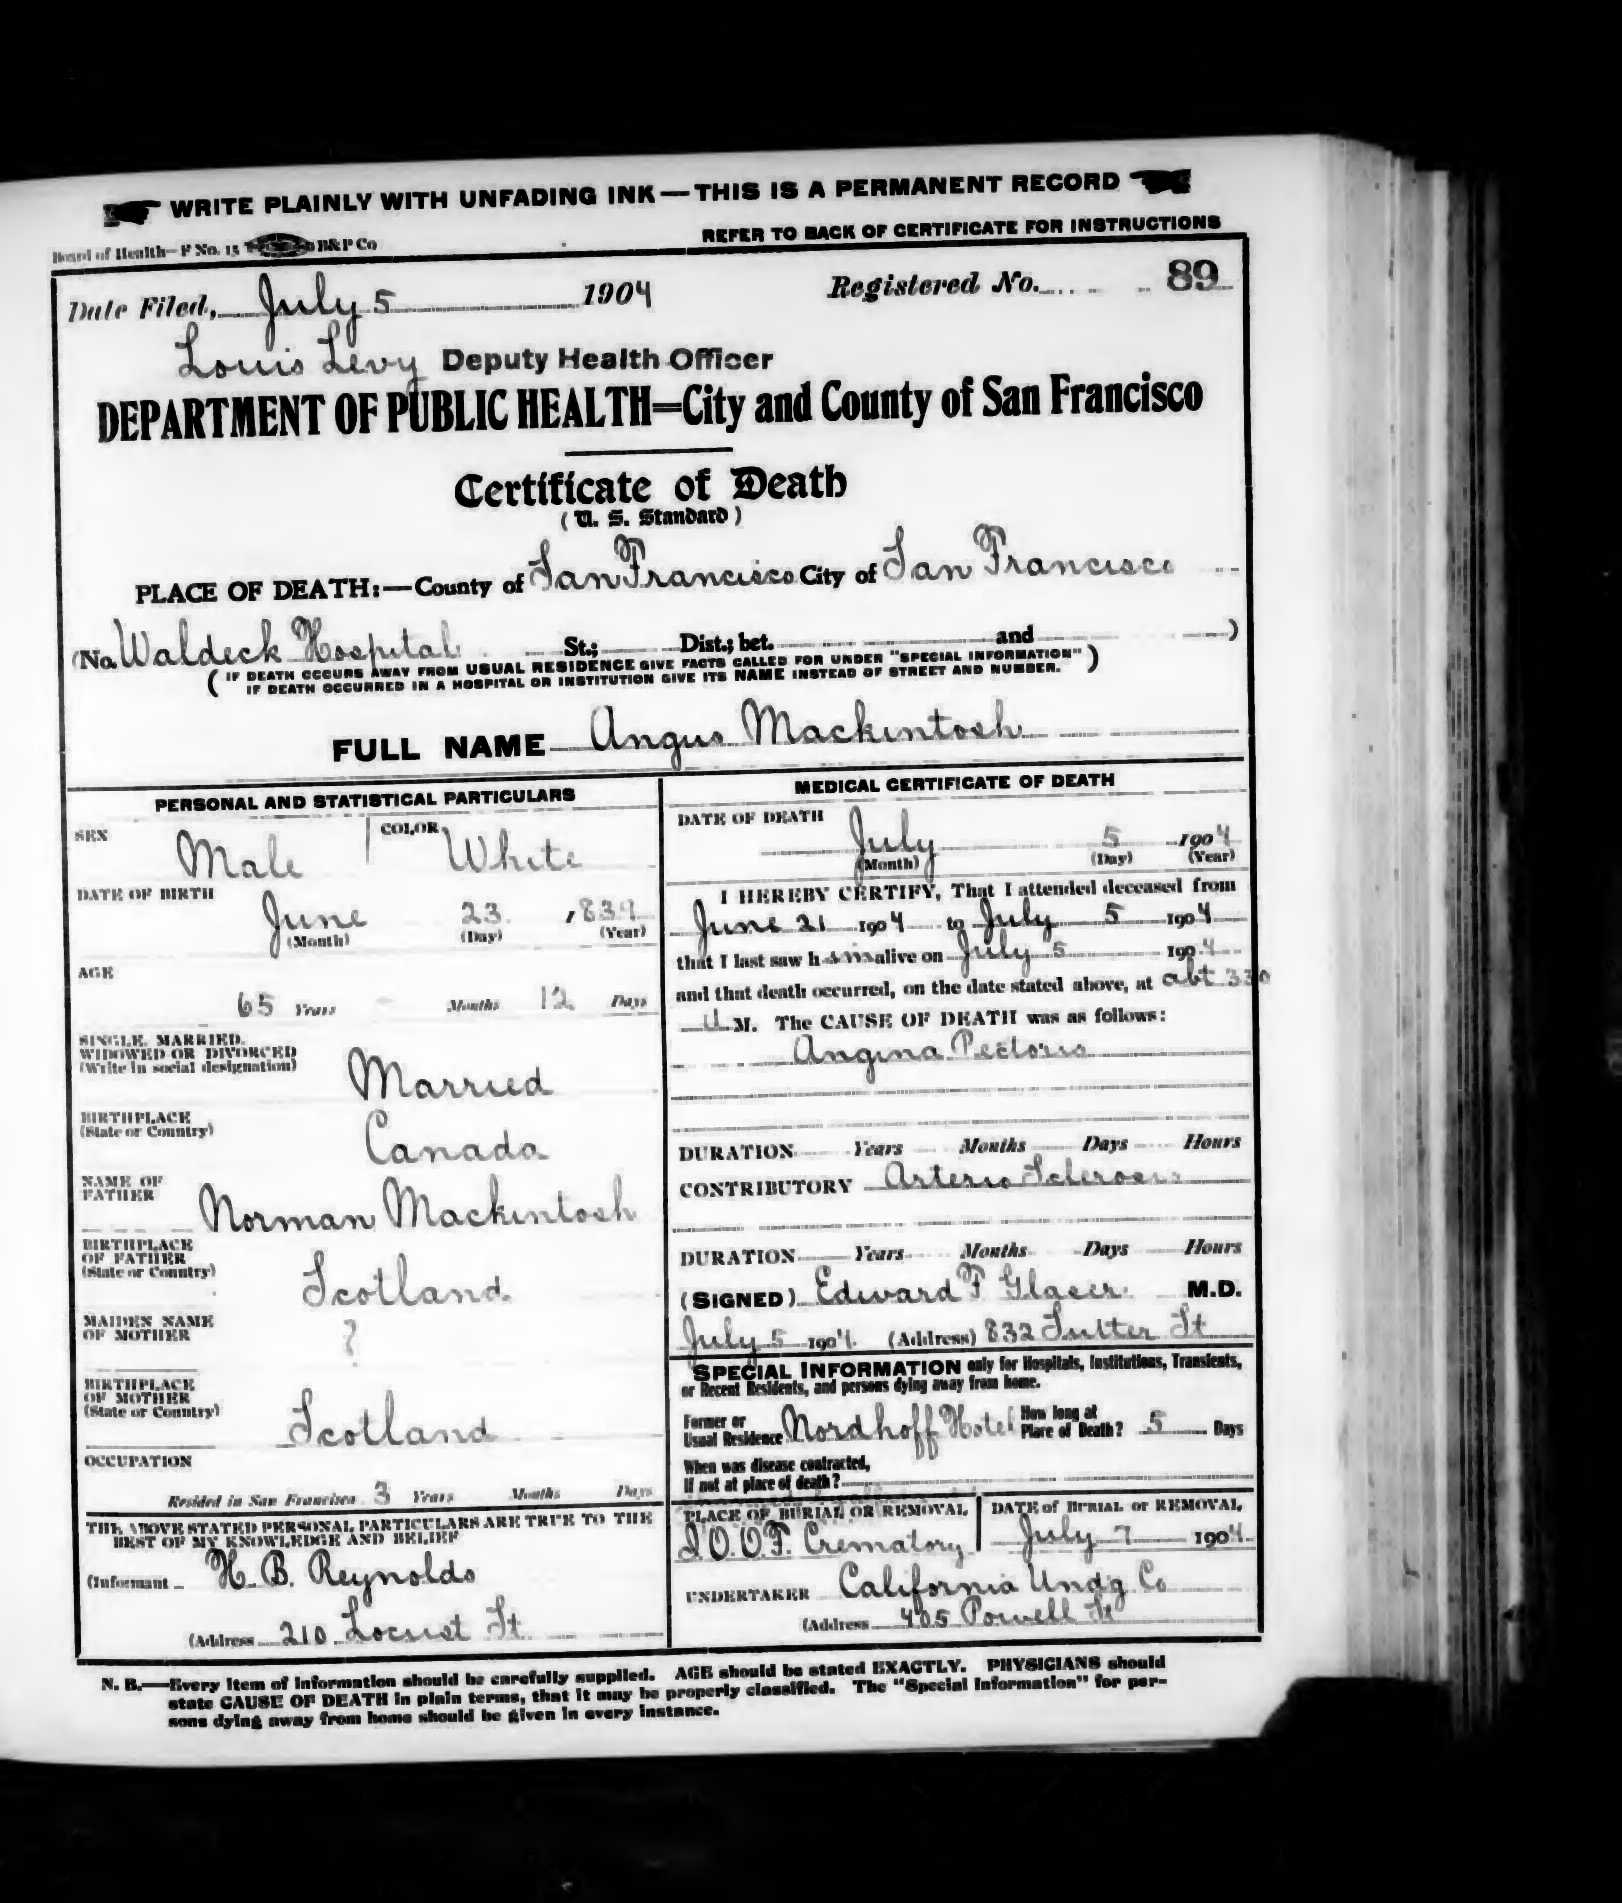 WRITE PLAINLY WITH UNFADING INK—THIS IS A PERMANENT RECORD
Board of Health—F No. 15 B&P Co
REFER TO BACK OF CERTIFICATE FOR INSTRUCTIONS
Date Filed, July 5 1904 Registered No. 89
Louis Levy Deputy Health Officer
DEPARTMENT OF PUBLIC HEALTH—City and County of San Francisco
Certificate of Death
(U. S. Standard)
PLACE OF DEATH:—County of San Francisco City of San Francisco
(No. Waldeck Hospital St.; Dist.; bet. and )
(IF DEATH OCCURS AWAY FROM USUAL RESIDENCE GIVE FACTS CALLED FOR UNDER "SPECIAL INFORMATION"
IF DEATH OCCURRED IN A HOSPITAL OR INSTITUTION GIVE ITS NAME INSTEAD OF STREET AND NUMBER.)
FULL NAME Angus Mackintosh
PERSONAL AND STATISTICAL PARTICULARS
SEX Male COLOR White
DATE OF BIRTH
June 23 1839
(Month) (Day) (Year)
AGE
65 Years Months 12 Days
SINGLE, MARRIED,
WIDOWED OR DIVORCED
(Write in social designation) Married
BIRTHPLACE
(State or Country) Canada
NAME OF
FATHER Norman Mackintosh
BIRTHPLACE
OF FATHER
(State or Country) Scotland
MAIDEN NAME
OF MOTHER ?
BIRTHPLACE
OF MOTHER
(State or Country) Scotland
OCCUPATION
Resided in San Francisco 3 Years Months Days
THE ABOVE STATED PERSONAL PARTICULARS ARE TRUE TO THE
BEST OF MY KNOWLEDGE AND BELIEF
(Informant H. B. Reynolds
(Address 210 Locust St
MEDICAL CERTIFICATE OF DEATH
DATE OF DEATH
July 5 1904
(Month) (Day) (Year)
I HEREBY CERTIFY, That I attended deceased from
June 21 1904 to July 5 1904
that I last saw him alive on July 5 1904
and that death occurred, on the date stated above, at abt 330
M. The CAUSE OF DEATH was as follows:
Angina Pectoris
DURATION Years Months Days Hours
CONTRIBUTORY Arterio Sclerosis
DURATION Years Months Days Hours
(SIGNED) Edward F Glaser M.D.
July 5 1904. (Address) 832 Sutter St
SPECIAL INFORMATION only for Hospitals, Institutions, Transients,
or Recent Residents, and persons dying away from home.
Former or
Usual Residence Nordhoff Hotel How long at
Place of Death? 5 Days
When was disease contracted,
If not at place of death?
PLACE OF BURIAL OR REMOVAL DATE of BURIAL or REMOVAL
I.O.O.F. Crematory July 7 1904
UNDERTAKER California Undg Co
(Address 405 Powell St
N. B.—Every item of information should be carefully supplied. AGE should be stated EXACTLY. PHYSICIANS should
state CAUSE OF DEATH in plain terms, that it may be properly classified. The "Special Information" for per-
sons dying away from home should be given in every instance.